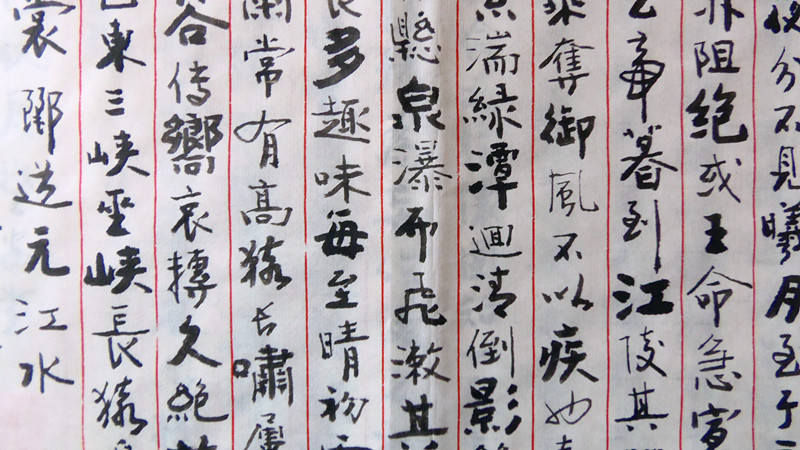 夜分不見曦月至于
阻絶或王命急宣
帝暮到江陵其
乘奪御風不以疾也
湍緑潭迴清倒影
懸泉瀑布飛漱其
多趣味每至晴初
常有高猿长嘯屬
谷傳嚮哀轉久絶
東三峽巫峽長猿
裳 酈道元江水